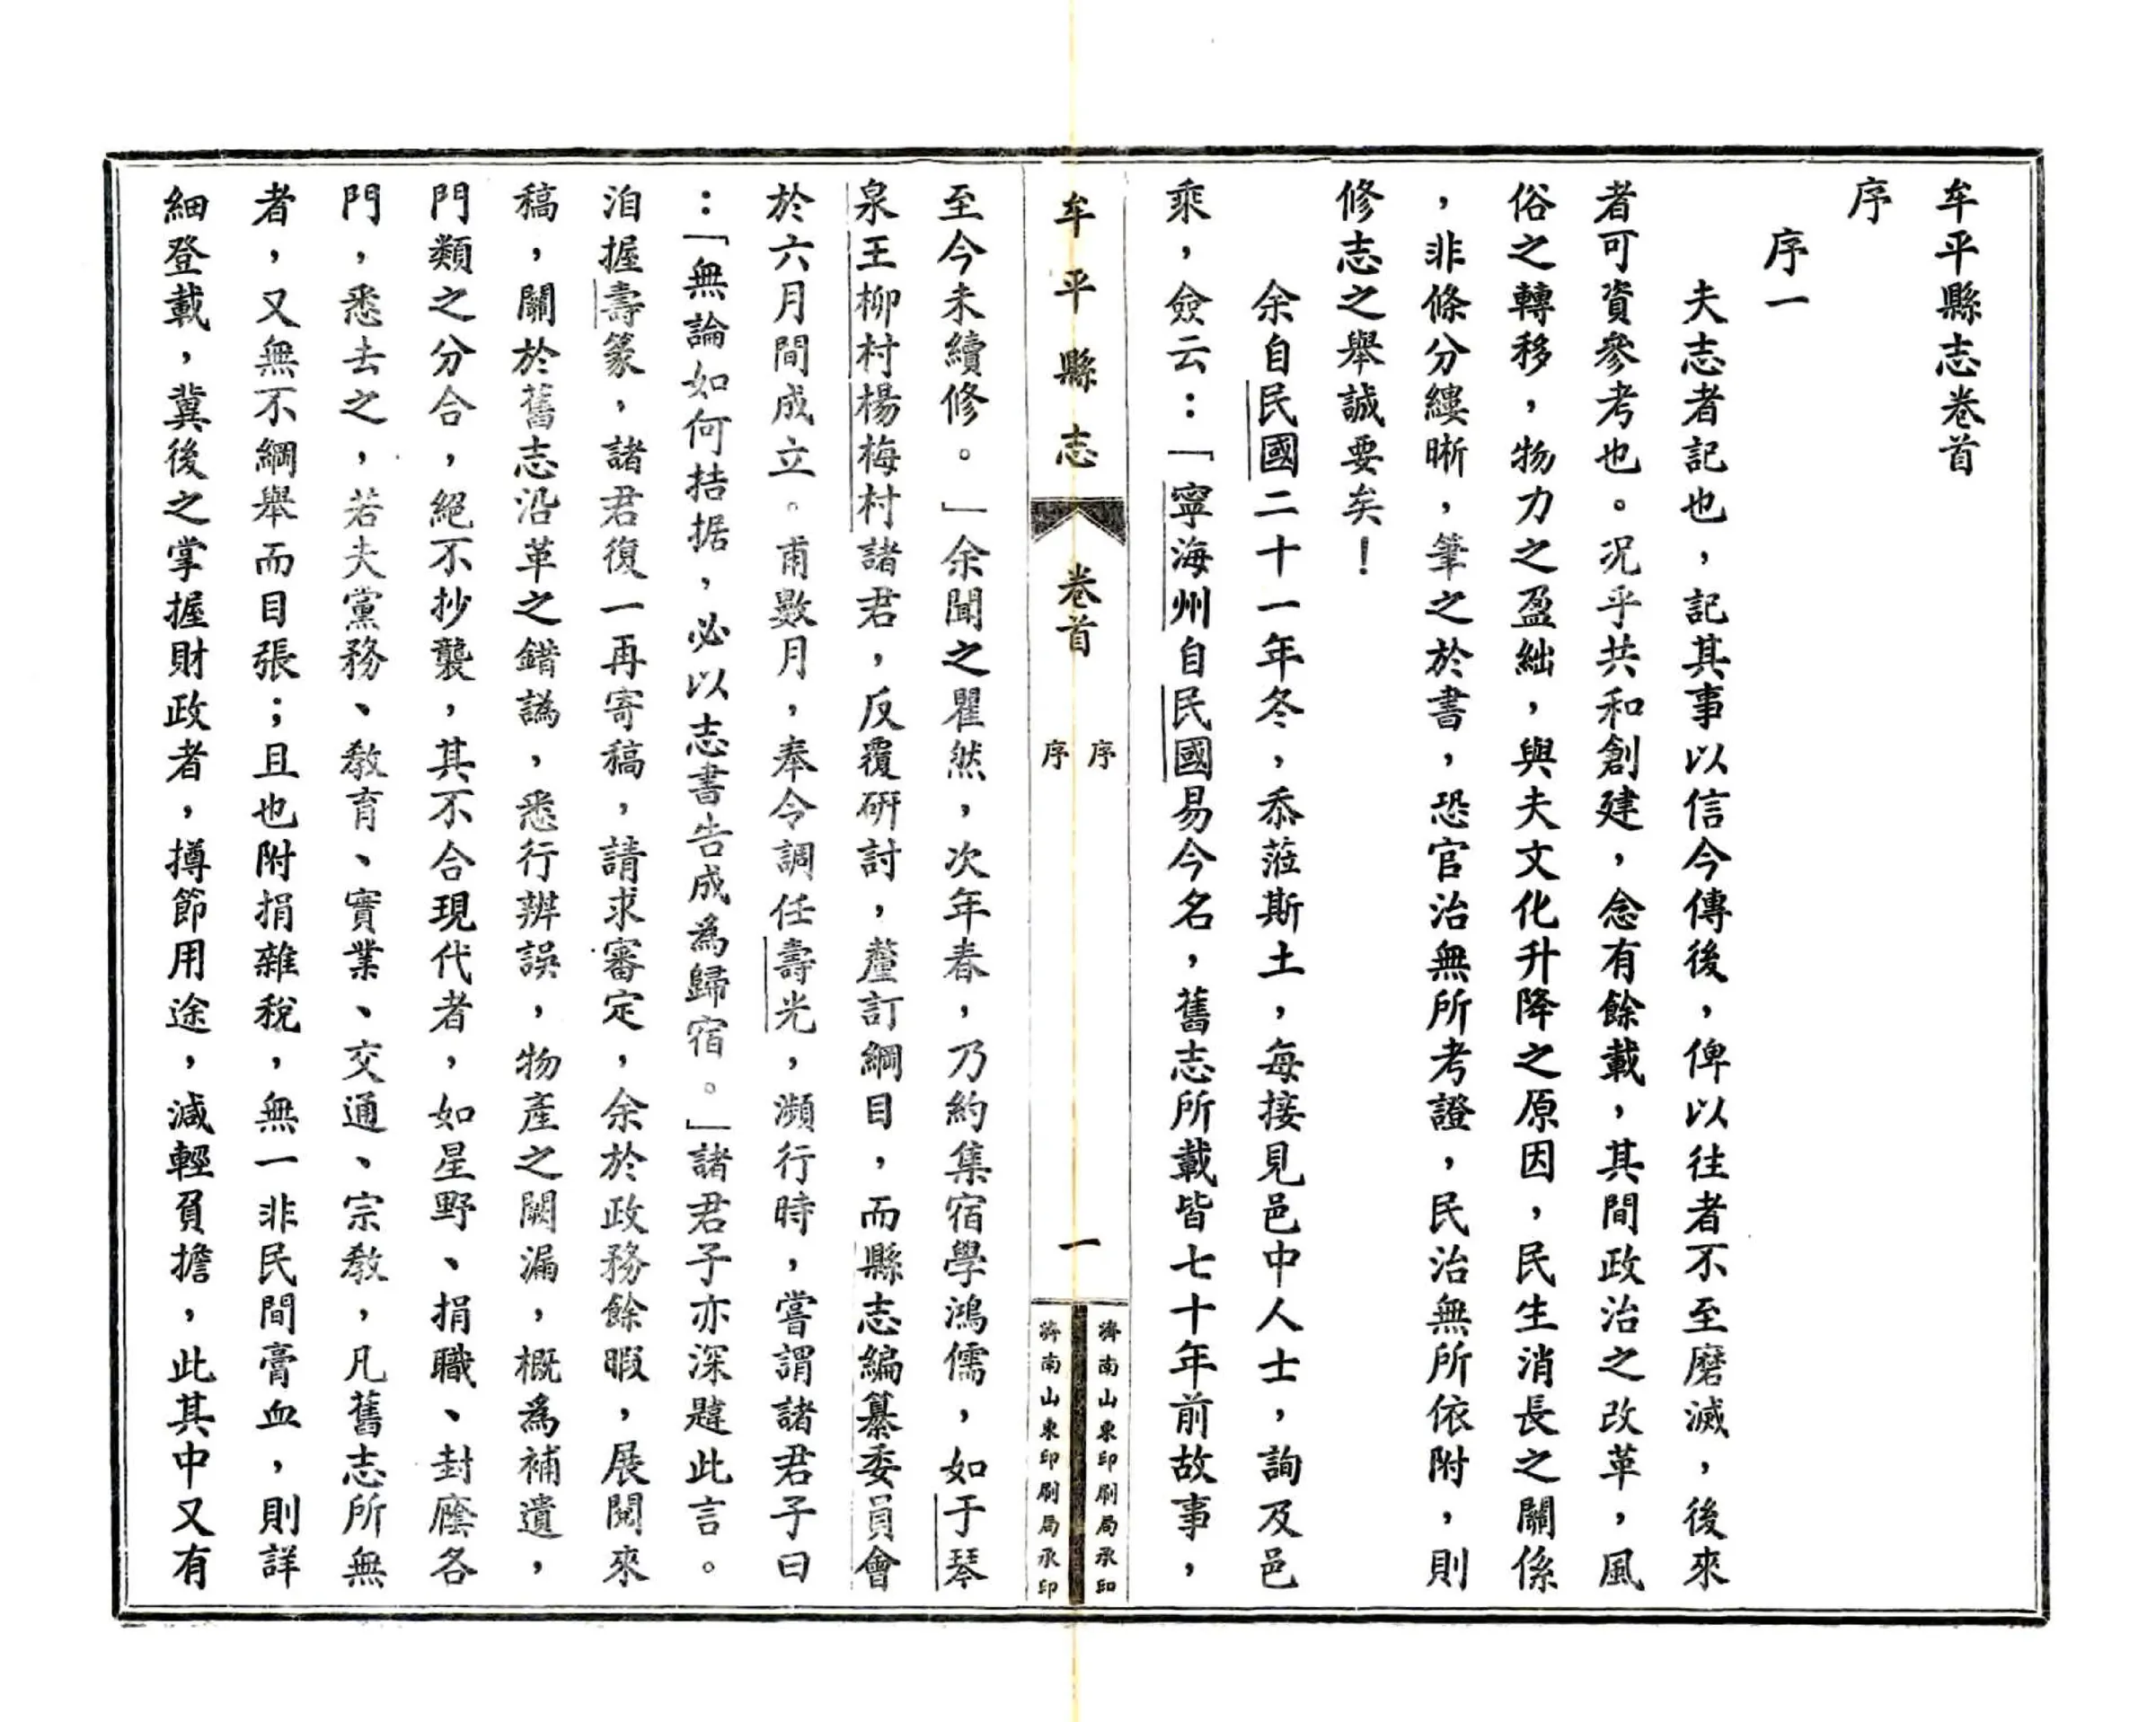 牟平縣志卷首
序
序一
夫志者記也，記其事以信今傳後，俾以往者不至磨滅，後來
者可資參考也。况乎共和創建，念有餘載，其間政治之改革，風
俗之轉移，物力之盈絀，與夫文化升降之原因，民生消長之關係
，非條分縷晰，筆之於書，恐官治無所考證，民治無所依附，則
修志之舉誠要矣！
余自民國二十一年冬，忝蒞斯土，每接見邑中人士，詢及邑
乘，僉云：「寧海州自民國易今名，舊志所載皆七十年前故事，
牟平縣志 卷首 序 序 一
濟南山東印刷局承印
濟南山東印刷局承印
至今未續修。」余聞之瞿然，次年春，乃約集宿學鴻儒，如于琴
泉王柳村楊梅村諸君，反覆研討，釐訂綱目，而縣志編纂委員會
於六月間成立。甫數月，奉令調任壽光，瀕行時，嘗謂諸君子曰
：「無論如何拮据，必以志書告成為歸宿。」諸君子亦深韙此言。
洎握壽篆，諸君復一再寄稿，請求審定，余於政務餘暇，展閱來
稿，關於舊志沿革之錯譌，悉行辨誤，物產之闕漏，概為補遺，
門類之分合，絕不抄襲，其不合現代者，如星野、捐職、封廕各
門，悉去之，若夫黨務、教育、實業、交通、宗教，凡舊志所無
者，又無不綱舉而目張；且也附捐雜稅，無一非民間膏血，則詳
細登載，冀後之掌握財政者，撙節用途，減輕負擔，此其中又有